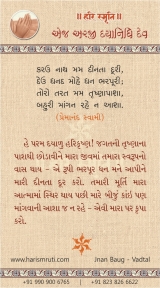 ॥ હરિ સ્મૃતિ ॥
એજ અરજી દયાનિધિ દેવ
કરઉ નાથ મમ દીનતા દૂરી,
દેઉ ધનદ મોહે ધન ભરપૂરી;
તોરો તરત મમ તૃષ્ણાપાશા,
બહુરી માંગન રહે ન આશા.
(પ્રેમાનંદ સ્વામી)
હે પરમ દયાળુ હરિકૃષ્ણ! જગતની તૃષ્ણાના
પાશથી છોડાવીને મારા જીવમાં તમારા સ્વરૂપનો
વાસ થાય - એ રૂપી ભરપૂર ધન મને આપીને
મારી દીનતા દૂર કરો. તમારી મૂર્તિ મારા
આત્મામાં સ્થિર થાય પછી મારે બીજું કાંઇ પણ
માંગવાની આશા જ ન રહે - એવી મારા પર કૃપા
કરો.
www.harismruti.com
Jnan Baug - Vadtal
+91 990 900 6765
+91 823 826 6622